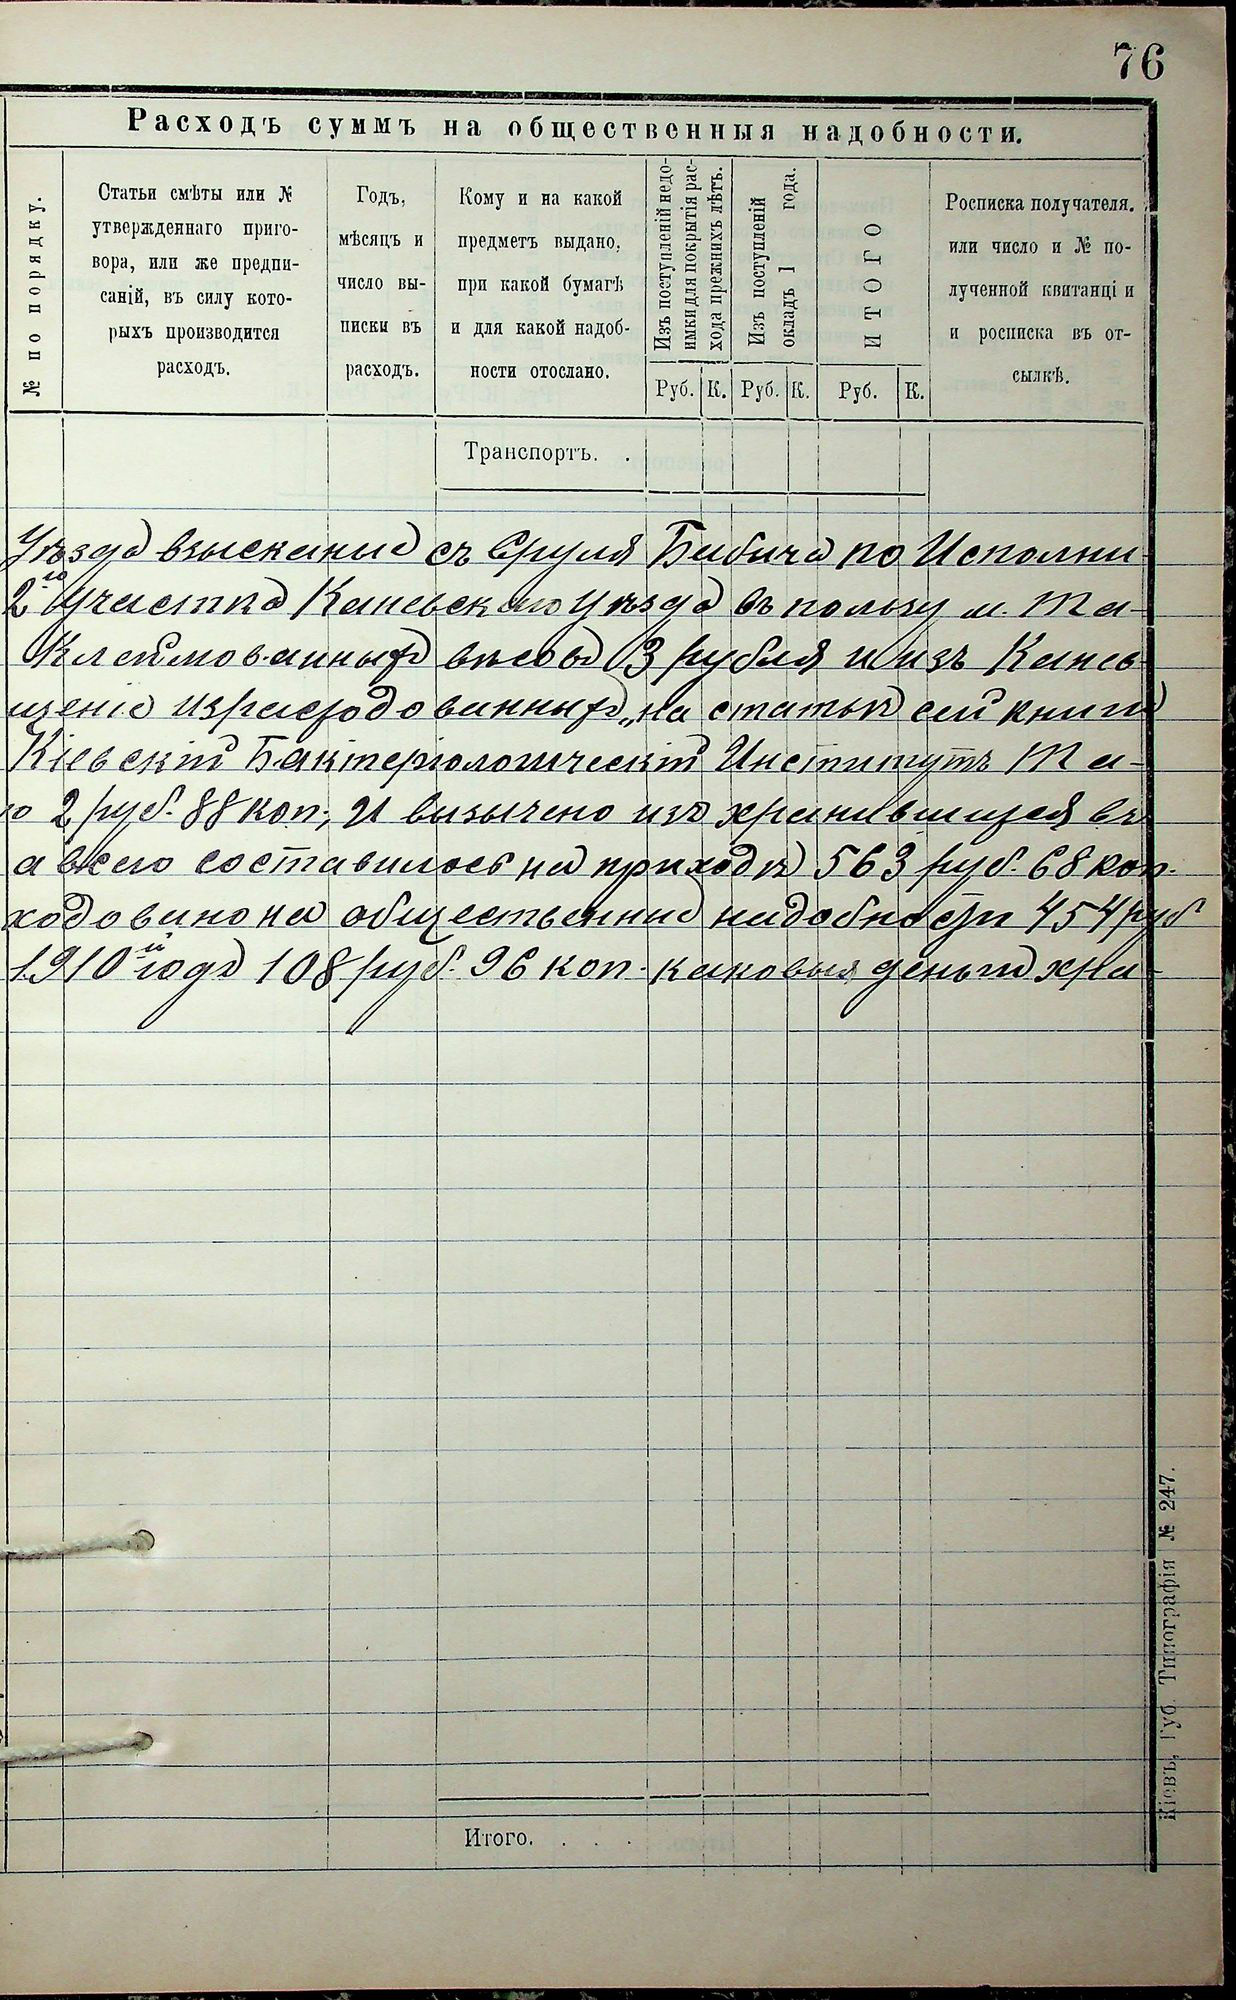 76
Расходъ суммъ на общественныя надобности.
№ по порядку.
Статьи смѣты или №
утвержденнаго приго-
вора, или же предпи-
саній, въ силу кото-
рыхъ производится
расходъ.
Годъ,
мѣсяцъ и
число вы-
писки въ
расходъ.
Кому и на какой
предметъ выдано,
при какой бумагѣ
и для какой надоб-
ности отослано.
Изъ поступленій недо-
имки для покрытія рас-
хода прежнихъ лѣтъ.
Изъ поступленій
окладъ 1 года.
ИТОГО
Росписка получателя,
или число и № по-
лученной квитанці и
и росписка въ от-
сылкѣ.
Руб. К. Руб. К. Руб. К.
Транспортъ. .
Уѣзда взысканые съ Сруля Бибича по Исполни-
2го Участка Каневскаго Уѣзда въ пользу м. Та-
Клеймованныхъ вѣсовъ 3 рубля и изъ Канев-
щеніе израсходованныхъ на статьи сей книги
Кіевскій Бактеріологическій Институтъ Та-
о 2 руб. 88 коп., И взычено изъ хранившихся въ
а всего составилось на приходѣ 563 руб. 68 коп.
ходовано на общественные надобности 454 руб
1910й годъ 108 руб. 96 коп. каковыя деньги хра-
Итого. . . .
Кіевъ, Губ. Типографія № 247.